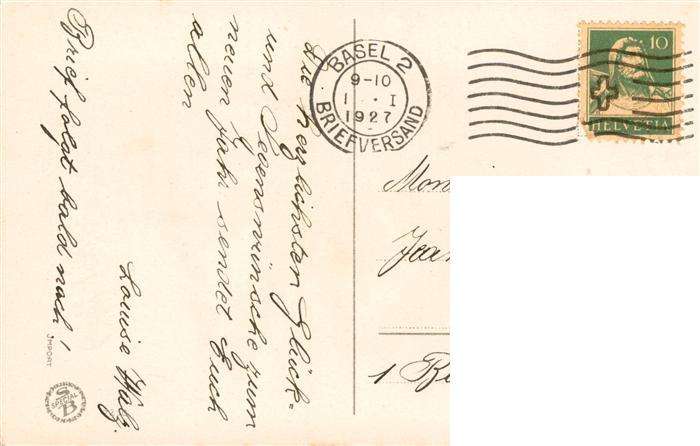 Die herzlichsten Glück-
und Segenswünsche zum
neuen Jahr sendet Euch
allen
Louise Walz.
Brief folgt bald nach!
IMPORT
SPECIAL
SB
BASEL 2
9-10
1 . I
1927
BRIEFVERSAND
10
HELVETIA
Mon
Jea
1 B